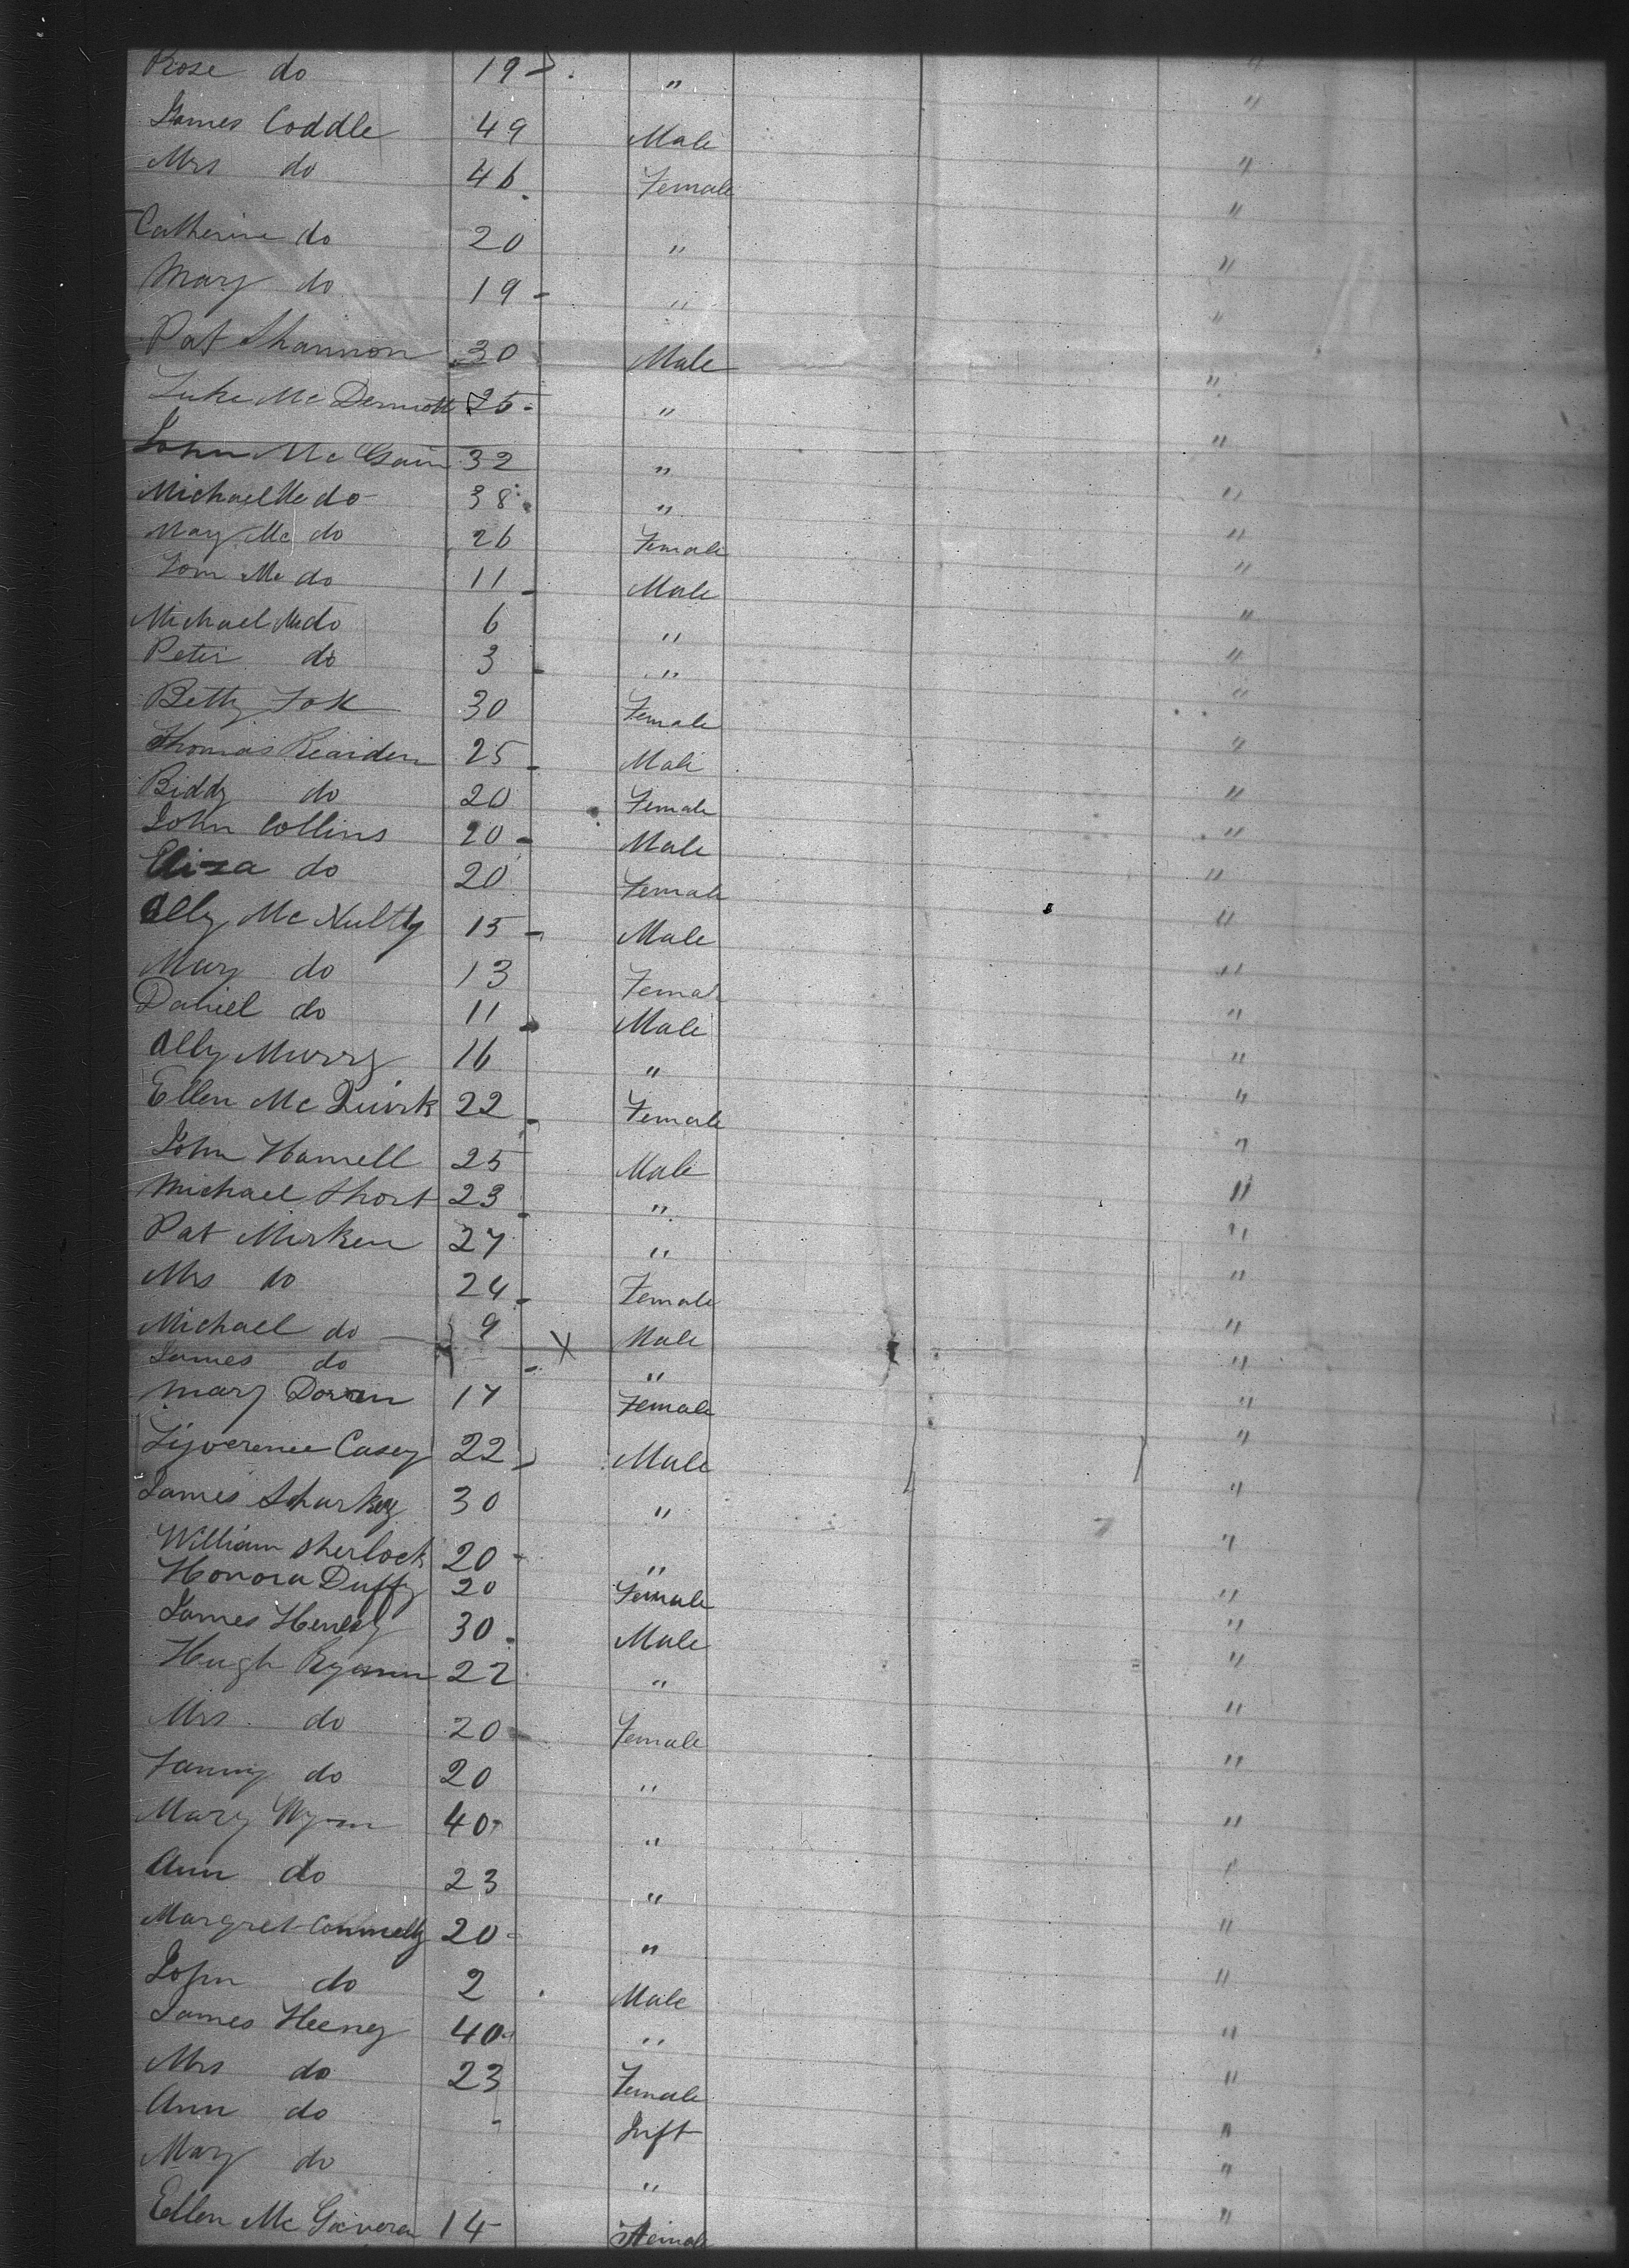 Rose do 19 " "
James Coddle 49 Male "
Mrs do 46 Female "
Catherine do 20 " "
Mary do 19 " "
Pat Shannon 30 Male "
Luke McDermott 25 " "
John McGain 32 " "
Michael Mc do 38 " "
May Mc do 26 Female "
Tom Mc do 11 Male "
Michael Mc do 6 " "
Peter do 3 " "
Betty Fox 30 Female "
Thomas Rearden 25 Male "
Biddy do 20 Female "
John Collins 20 Male "
Eliza do 20 Female "
Ally McNulty 15 Male "
Mary do 13 Female "
Daniel do 11 Male "
Ally Murry 16 " "
Ellen McQuirk 22 Female "
John Hamell 25 Male "
Michael Short 23 " "
Pat Mirken 27 " "
Mrs do 24 Female "
Michael do 9 X Male "
James do " "
Mary Doran 17 Female "
Casey 22 Male "
James Sharkey 30 " "
William Sherlock 20 " "
Honora Duffy 20 Female "
James Henley 30 Male "
Hugh 22 " "
Mrs do 20 Female "
Fanny do 20 " "
Mary Wynn 40 " "
Ann do 23 " "
Margret Connelly 20 " "
John do 2 Male "
James Heeney 40 " "
Mrs do 23 Female "
Ann do Inft "
Mary do " "
Ellen McGaveren 14 Female "